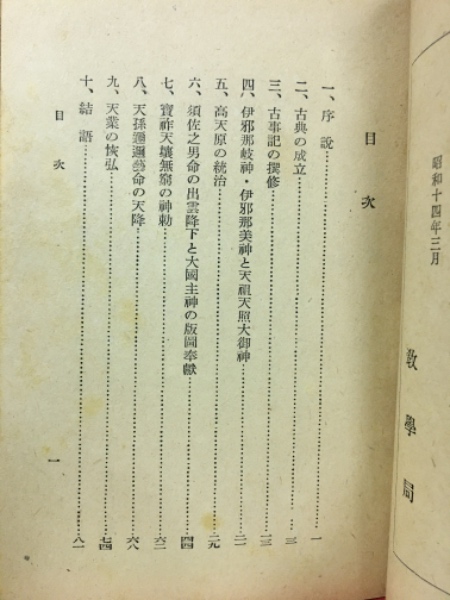 昭和十四年三月
敎學局
目次
一、序說……一
二、古典の成立……三
三、古事記の撰修……一三
四、伊邪那岐神・伊邪那美神と天祖天照大御神……二一
五、高天原の統治……二九
六、須佐之男命の出雲降下と大國主神の版圖奉獻……四四
七、寶祚天壤無窮の神勅……六二
八、天孫邇邇藝命の天降……六八
九、天業の恢弘……七四
十、結語……八一
目次
一